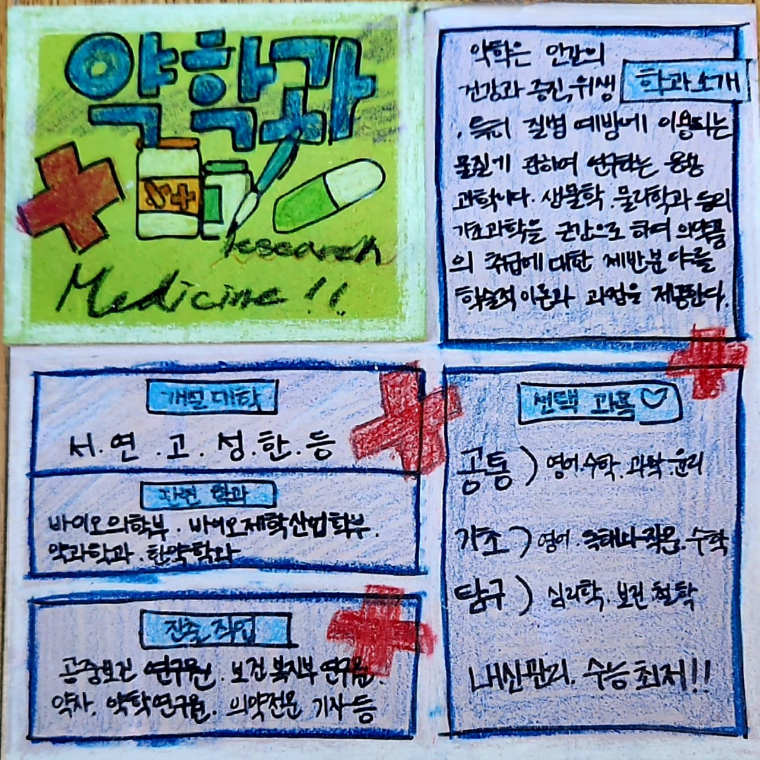 약학과
research
Medicine !!
학과소개
약학은 인간의
건강과 증진, 위생
, 특히 질병 예방에 이용되는
물질에 관하여 연구하는 응용
과학이다. 생물학, 물리학과 등의
기초과학을 근간으로 하여 의약품
의 취급에 대한 제반분야를
학술적 이론과 과정을 제공한다.
개설대학
서.연.고.성.한.등
관련 학과
바이오의학부. 바이오제학산업학부.
약과학과. 한약학과
진출직업
공중보건 연구원. 보건복지부 연구원.
약사. 약학연구원. 의약전문 기자 등
선택 과목♡
공통) 영어.수학.과학.윤리
기초) 영어. 수학
탐구) 심리학, 보건, 철학
내신관리, 수능최저!!